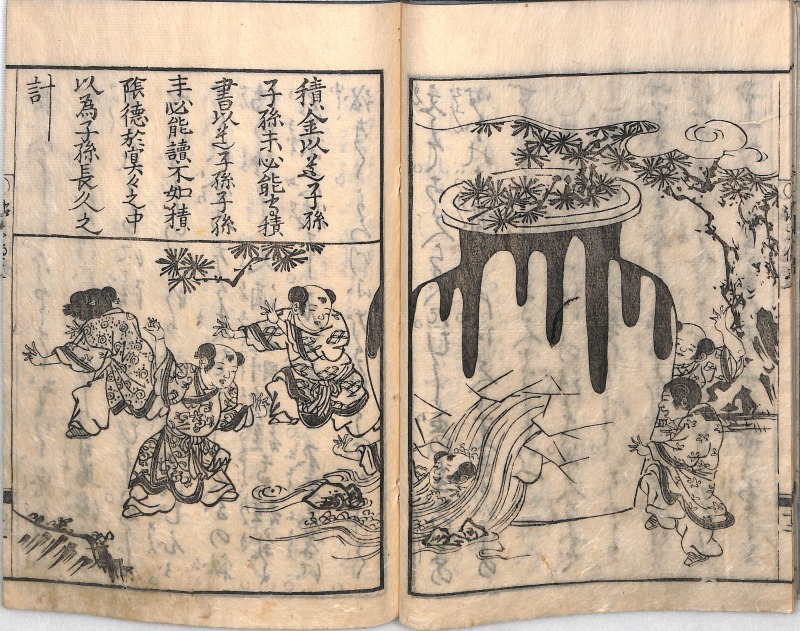 積金以遺子孫
子孫未必能守積
書以遺子孫子孫
未必能讀不如積
陰德於冥々之中
以為子孫長久之
計